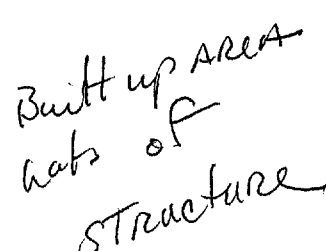 Built up AREA
hats of
STRucture